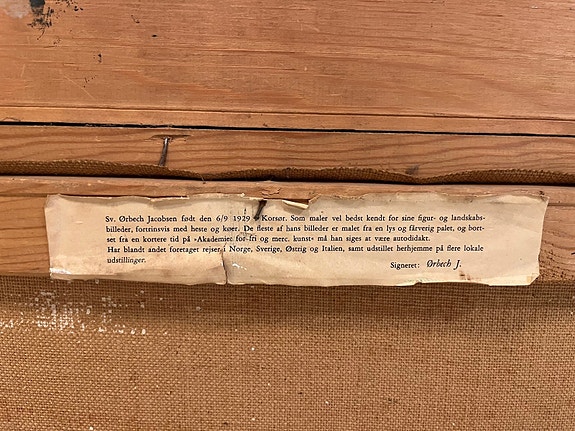 Sv. Ørbech Jacobsen født den 6/9 1929 Korsør. Som maler vel bedst kendt for sine figur- og landskabs-
billeder, fortrinsvis med heste og køer. De fleste af hans billeder er malet fra en lys og farverig palet, og bort-
set fra en kortere tid på »Akademiet for fri og merc. kunst« må han siges at være autodidakt.
Har blandt andet foretaget rejser i Norge, Sverige, Østrig og Italien, samt udstillet herhjemme på flere lokale
udstillinger.
Signeret: Ørbech J.